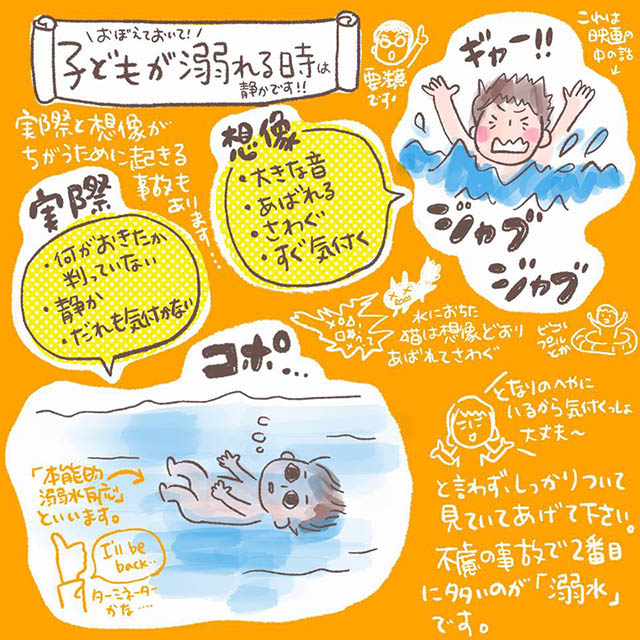 おぼえておいて!
子どもが溺れる時は
静かです!!
要注意
です!
これは
映画の
中の話
ギャー!!
実際と想像が
ちがうために起きる
事故も
あります…
想像
・大きな音
・あばれる
・さわぐ
・すぐ気付く
実際
・何がおきたか
判っていない
・静か
・だれも気付かない
ジャブ
ジャブ
水におちた
猫は想像どおり
あばれてさわぐ
プールとか
コポ…
となりのへやに
いるから気付くっしょ
大丈夫〜
「本能的
溺水反応」
といいます。
I'll be
back...
ターミネーター
かな....
と言わず、しっかりついて
見ていてあげて下さい。
不慮の事故で2番目
に多いのが「溺水」
です。